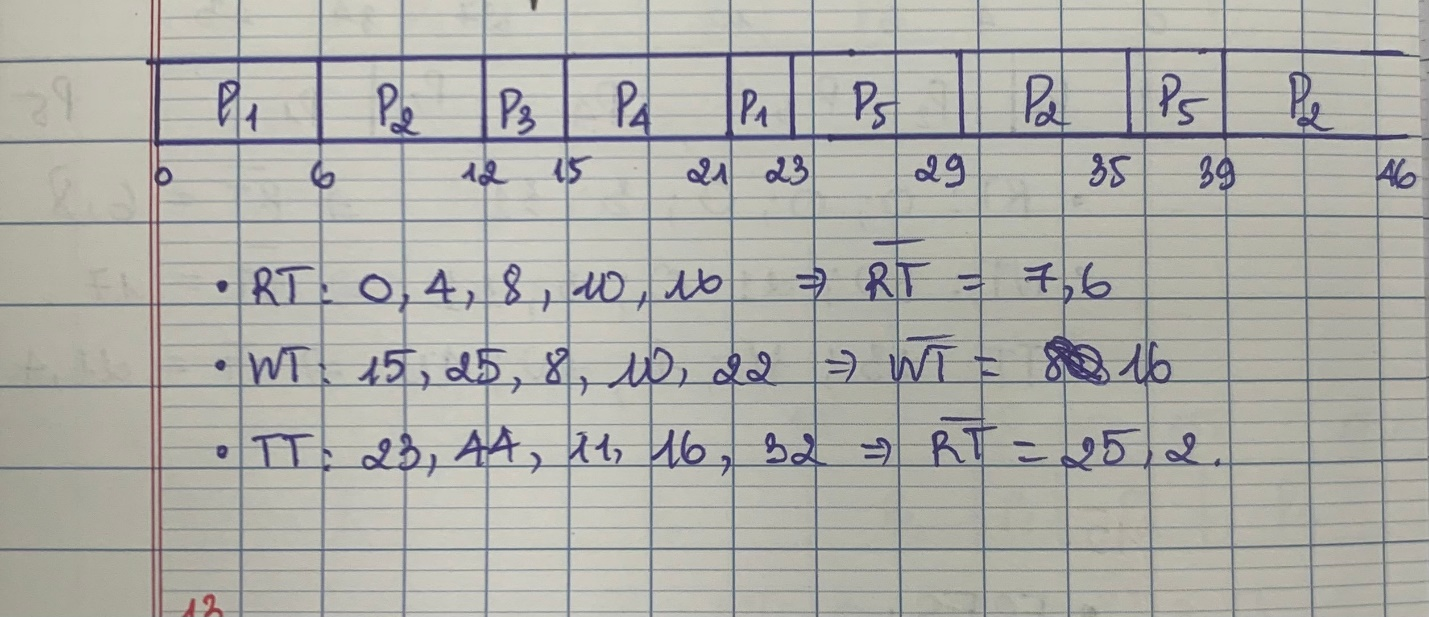 P1 P2 P3 P4 P1 P5 P2 P5 P2
0 6 12 15 21 23 29 35 39 46
• RT: 0, 4, 8, 10, 16 ⇒ R̅T̅ = 7,6
• WT: 15, 25, 8, 10, 22 ⇒ W̅T̅ = 16
• TT: 23, 44, 11, 16, 32 ⇒ R̅T̅ = 25,2.
13